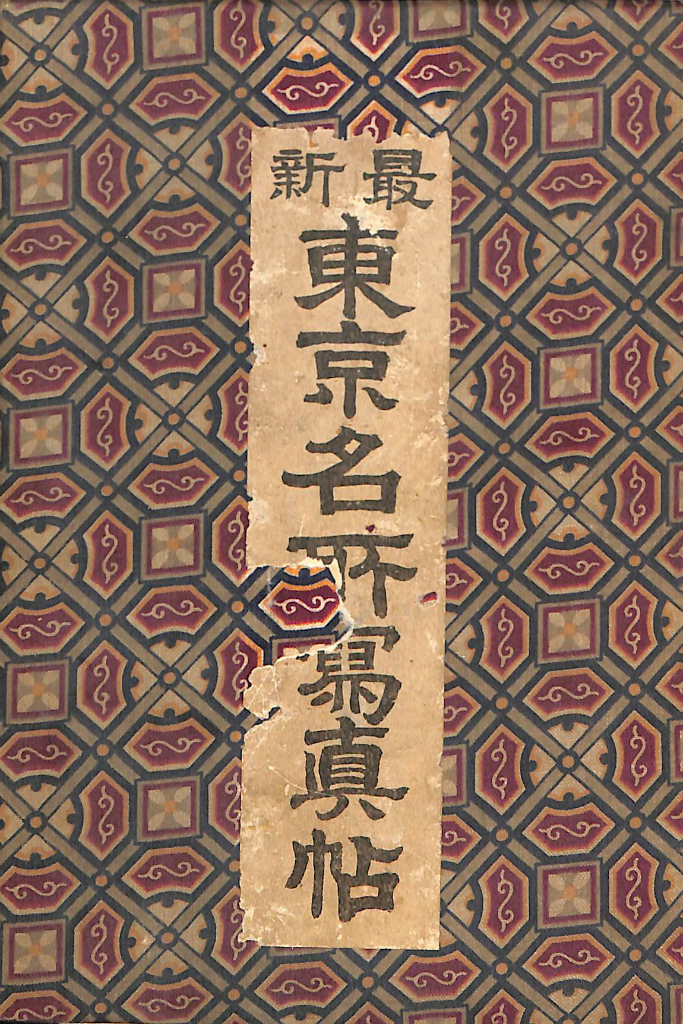 最新
東京名所寫真帖